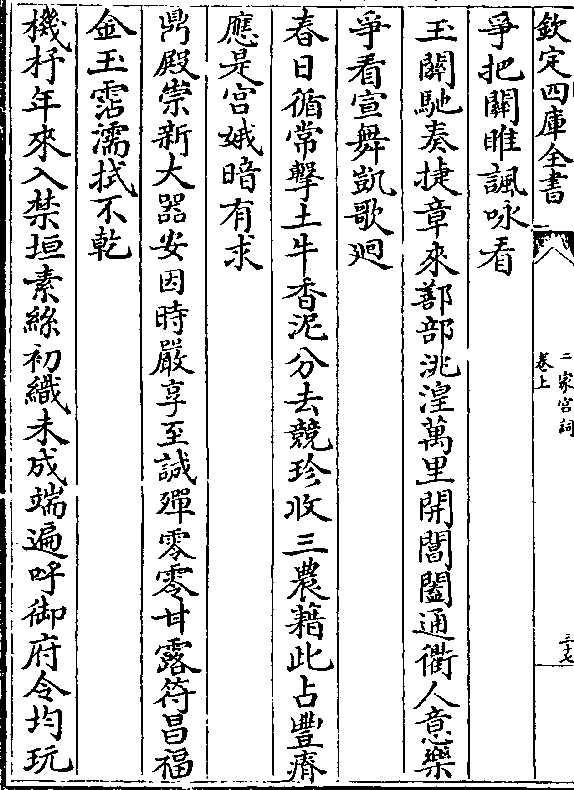 欽定四庫全書
二家宮詞
卷上
三十七
爭把關睢諷咏看
玉關馳奏捷章來鄯部洮湟萬里開閶闔通衢人意樂
爭看宣舞凱歌廻
春日循常擊土牛香泥分去競珍收三農藉此占豐瘠
應是宮娥暗有求
鼎殿崇新大器安因時嚴享至誠殫零零甘露符昌福
金玉霑濡拭不乾
機杼年來入禁垣素絲初織未成端遍呼御府令均玩